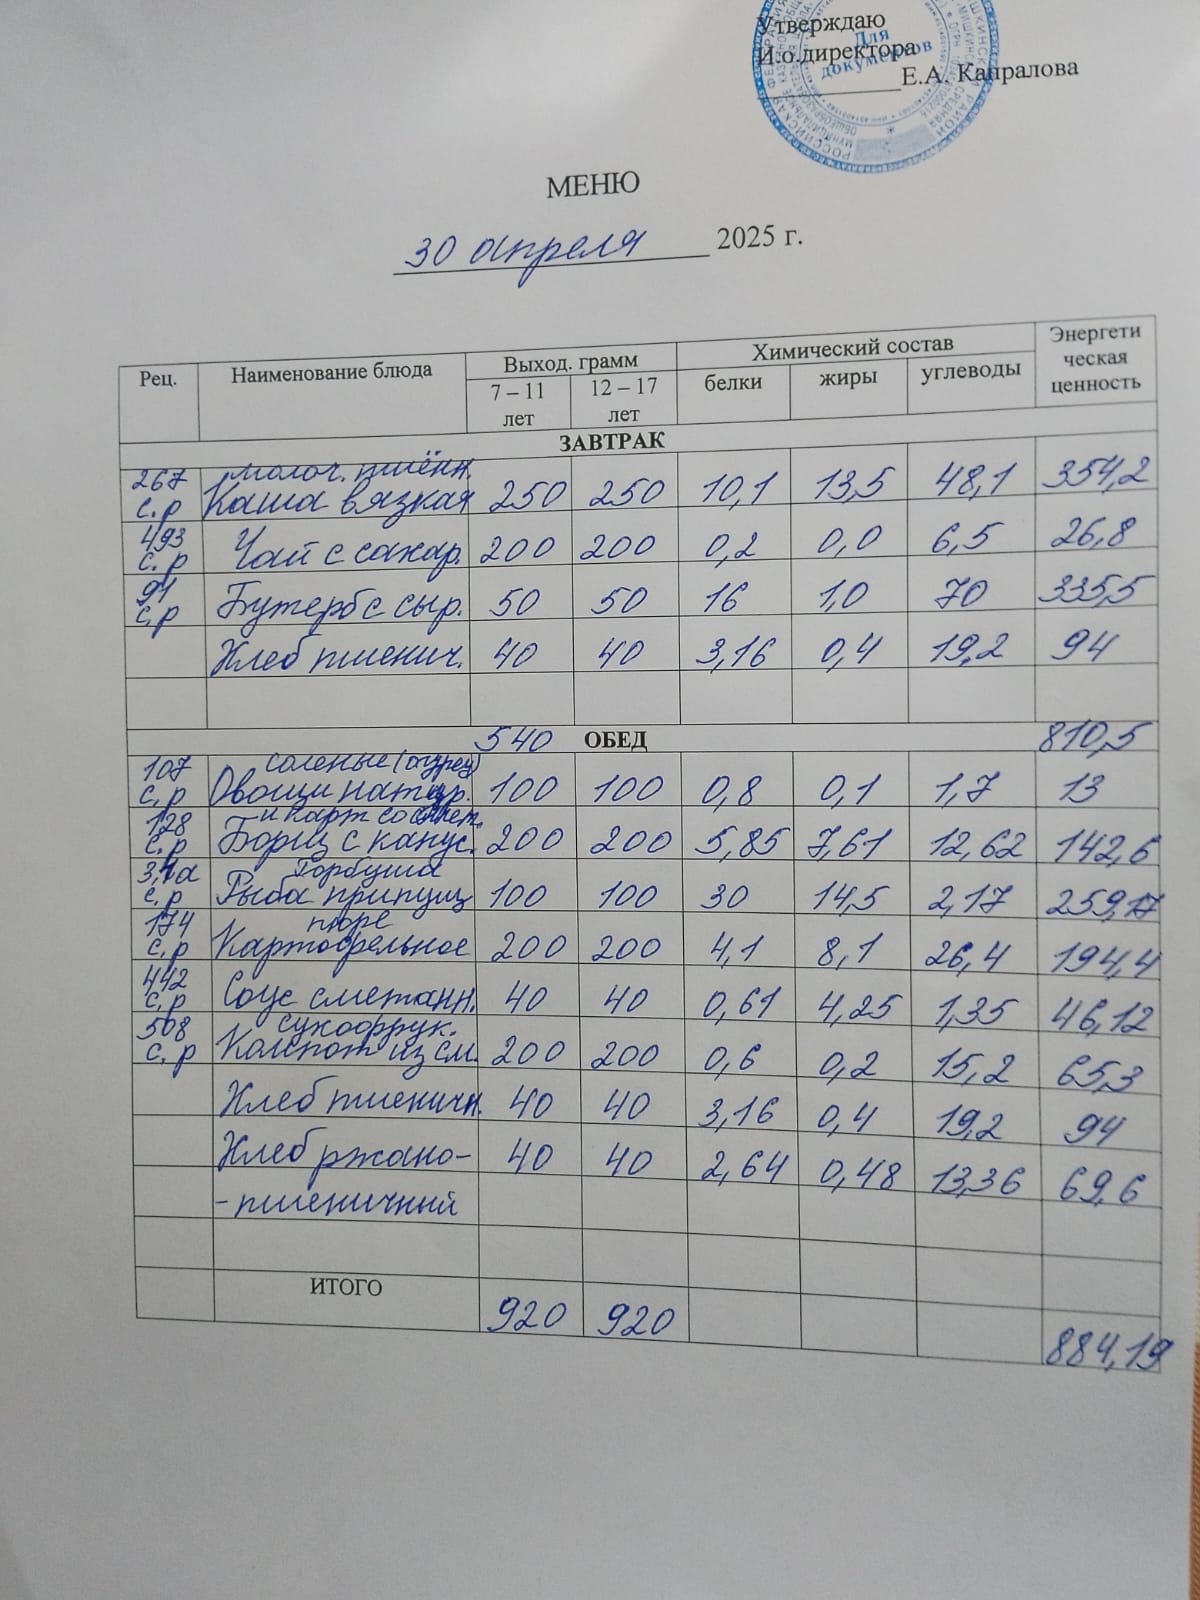 Утверждаю
И.о.директора
Для
документов
Е.А. Капралова
МЕНЮ
30 апреля 2025 г.
Рец. Наименование блюда Выход. грамм Химический состав Энергети
ческая
ценность
7 – 11
лет 12 – 17
лет белки жиры углеводы
ЗАВТРАК
267 молоч. пшённ.
с.р Каша вязкая 250 250 10,1 13,5 48,1 354,2
493
с.р Чай с сахар. 200 200 0,2 0,0 6,5 26,8
91
с.р Бутерб с сыр. 50 50 16 1,0 70 335,5
Хлеб пшенич. 40 40 3,16 0,4 19,2 94
540 ОБЕД 810,5
107 соленые (огурец)
с.р Овощи натур. 100 100 0,8 0,1 1,7 13
128 и карт со смет.
с.р Борщ с капус. 200 200 5,85 7,61 12,62 142,6
Горбуша
с.р Рыба припущ 100 100 30 14,5 2,17 259,17
174 пюре
с.р Картофельное 200 200 4,1 8,1 26,4 194,4
442
с.р Соус сметанн. 40 40 0,61 4,25 1,35 46,12
508 сухофрук.
с.р Компот из см. 200 200 0,6 0,2 15,2 65,3
Хлеб пшеничн. 40 40 3,16 0,4 19,2 94
Хлеб ржано- 40 40 2,64 0,48 13,36 69,6
-пшеничный
ИТОГО 920 920 884,19